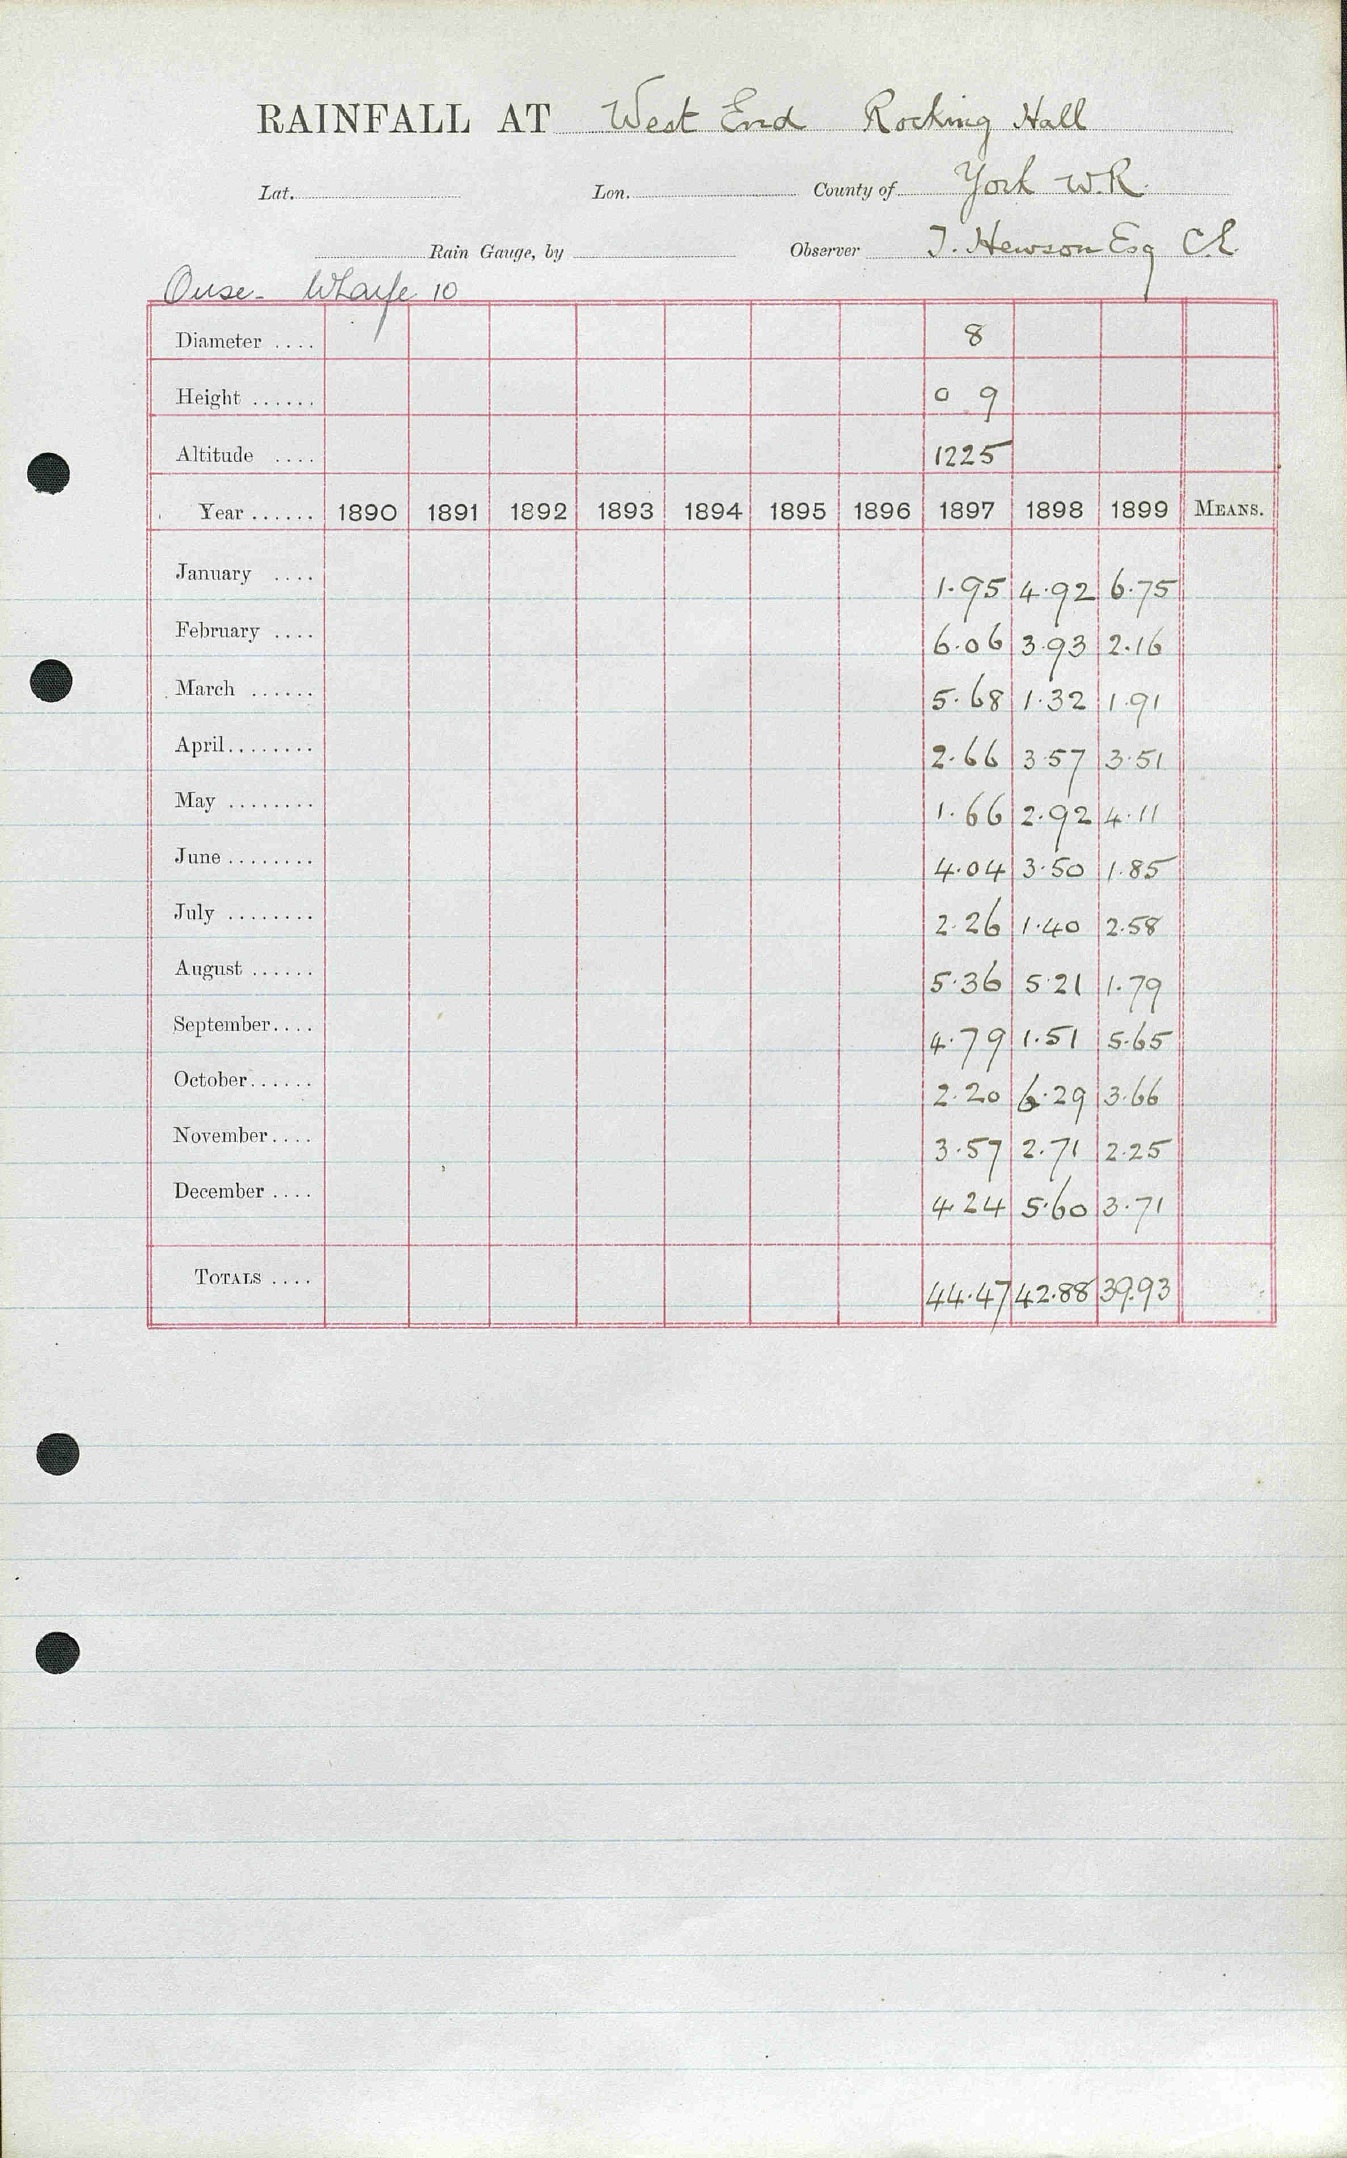 RAINFALL AT West End Rocking Hall
Lat. Lon. County of York W.R.
Rain Gauge, by Observer T. Hewson Esq C.E.
Ouse - Wharfe 10
Diameter .... 8
Height ...... 0 9
Altitude .... 1225
Year ...... 1890 1891 1892 1893 1894 1895 1896 1897 1898 1899 MEANS.
January .... 1.95 4.92 6.75
February .... 6.06 3.93 2.16
March ...... 5.68 1.32 1.91
April ........ 2.66 3.57 3.51
May ........ 1.66 2.92 4.11
June ........ 4.04 3.50 1.85
July ........ 2.26 1.40 2.58
August ...... 5.36 5.21 1.79
September .... 4.79 1.51 5.65
October ...... 2.20 6.29 3.66
November .... 3.57 2.71 2.25
December .... 4.24 5.60 3.71
TOTALS .... 44.47 42.88 39.93